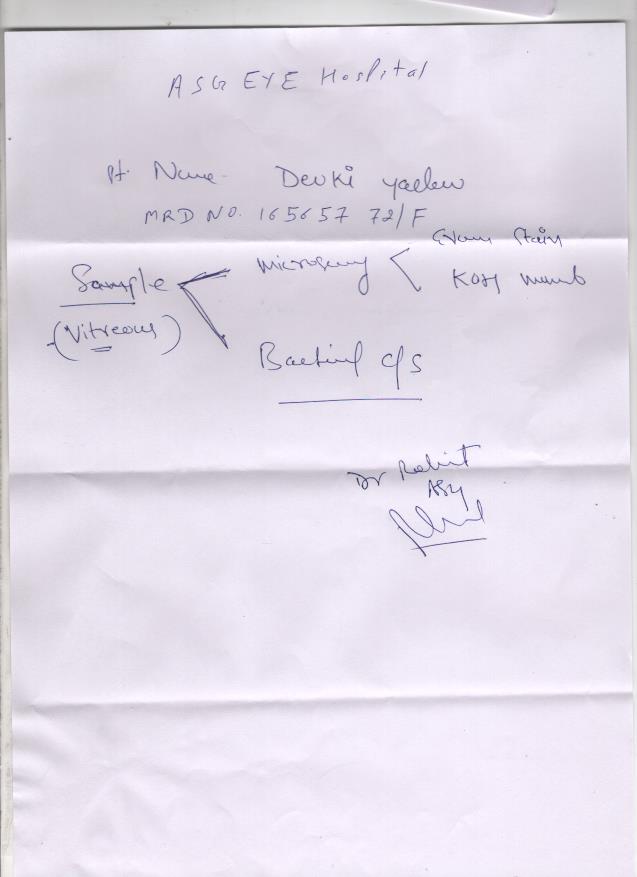 ASG EYE Hospital
Pt. Name - Devki Yadav
MRD NO. 165657 72/F
Sample
(Vitreous)
microscopy
Gram Stain
KOH mount
Bacterial c/s
Dr Rohit
ASG